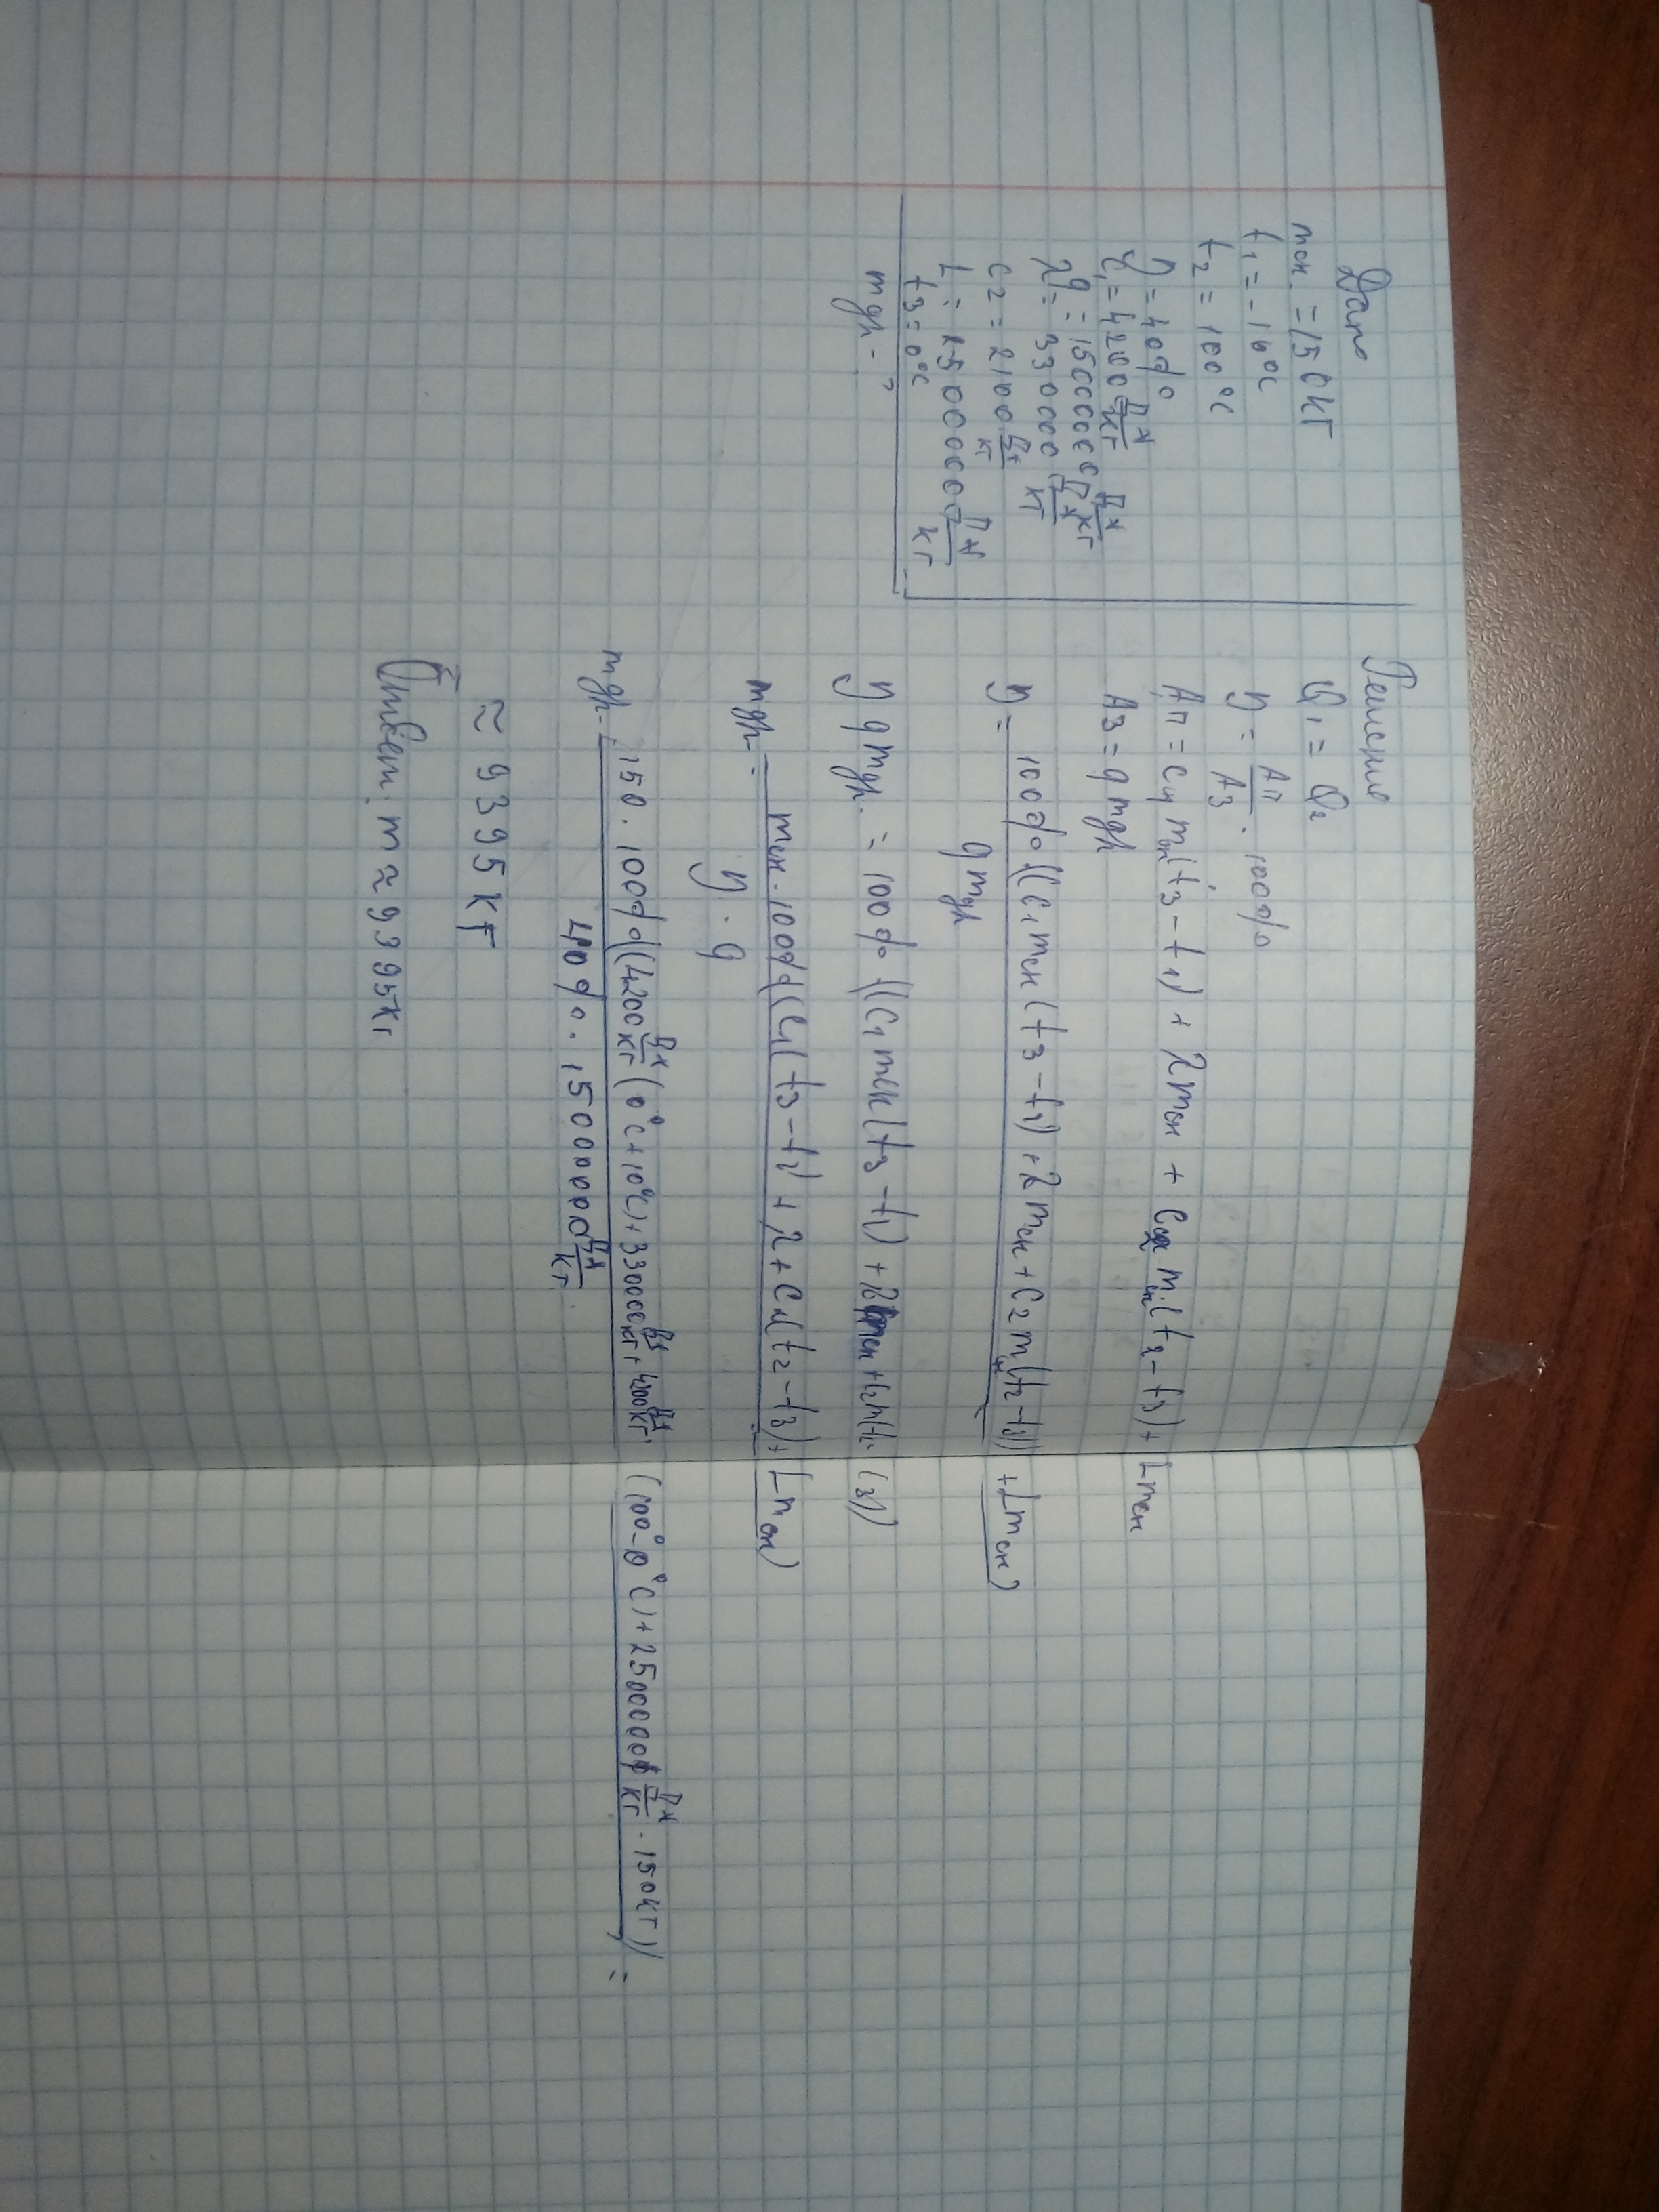 Дано
mсн. = 150 кг
t₁ = -10°C
t₂ = 100°C
η = 40%
c₁ = 4200 Дж/кг
q = 15000000 Дж/кг
λ = 330000 Дж/кг
c₂ = 2100 Дж/кг
L = 2500000 Дж/кг
t₃ = 0°C
mдр - ?
Решение
Q₁ = Q₂
η = Aп/Aз · 100%
Aп = c₁ mсн(t₃ - t₁) + λmсн + c₂ mсн(t₂ - t₃) + Lmсн
Aз = q mдр
η = 100%((c₁mсн(t₃ - t₁) + λmсн + c₂mсн(t₂ - t₃) + Lmсн) / q mдр
η q mдр. = 100%((c₁mсн(t₃ - t₁) + λmсн + c₂m(t₂ - t₃))
mдр = mсн · 100%(c₁(t₃ - t₁) + λ + c₁(t₂ - t₃) + Lmсн) / η · q
mдр = 150 · 100%((4200 Дж/кг (0°C + 10°C) + 330000 Дж/кг + 4200 Дж/кг · (100° - 0°C) + 2500000 Дж/кг · 150кг)) / 40% · 15000000 Дж/кг =
≈ 9395 кг
Ответ: m ≈ 9395кг